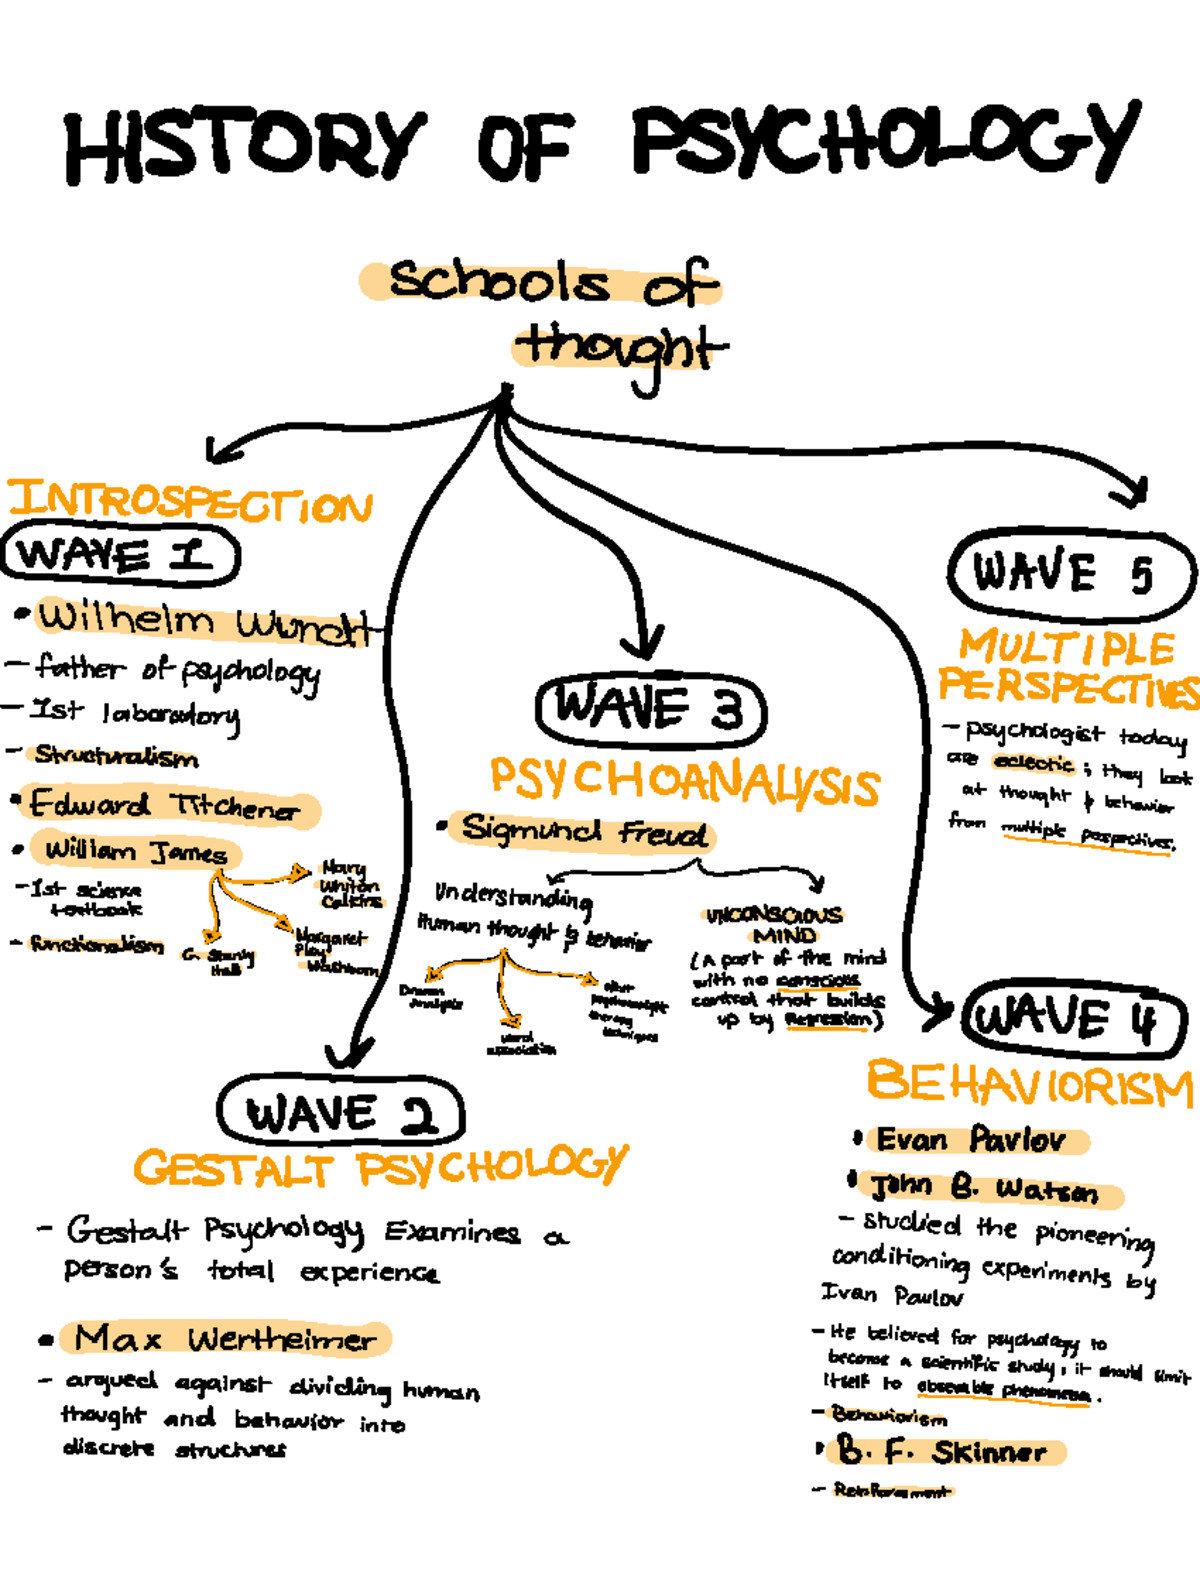 HISTORY OF PSYCHOLOGY
Schools of
thought
INTROSPECTION
WAVE 1
• Wilhelm Wundt
- father of psychology
- 1st laboratory
- Structuralism
• Edward Titchener
• William James
- 1st science
textbook
- functionalism
Mary
Whiton
Calkins
Margaret
Floy
Washburn
G. Stanly
Hall
WAVE 2
GESTALT PSYCHOLOGY
- Gestalt Psychology Examines a
person's total experience
• Max Wertheimer
- argued against dividing human
thought and behavior into
discrete structures
WAVE 3
PSYCHOANALYSIS
• Sigmund Freud
Understanding
Human thought & behavior
Dream
Analysis
word
association
other
therapy
techniques
UNCONSCIOUS
MIND
(A part of the mind
with no conscious
control that builds
up by Repression)
WAVE 4
BEHAVIORISM
• Evan Pavlov
• John B. Watson
- studied the pioneering
conditioning experiments by
Ivan Pavlov
- He believed for psychology to
become a scientific study, it should limit
itself to observable phenomena.
- Behaviorism
• B. F. Skinner
- Reinforcement
WAVE 5
MULTIPLE
PERSPECTIVES
- psychologist today
are eclectic ; they look
at thought & behavior
from multiple perspectives.